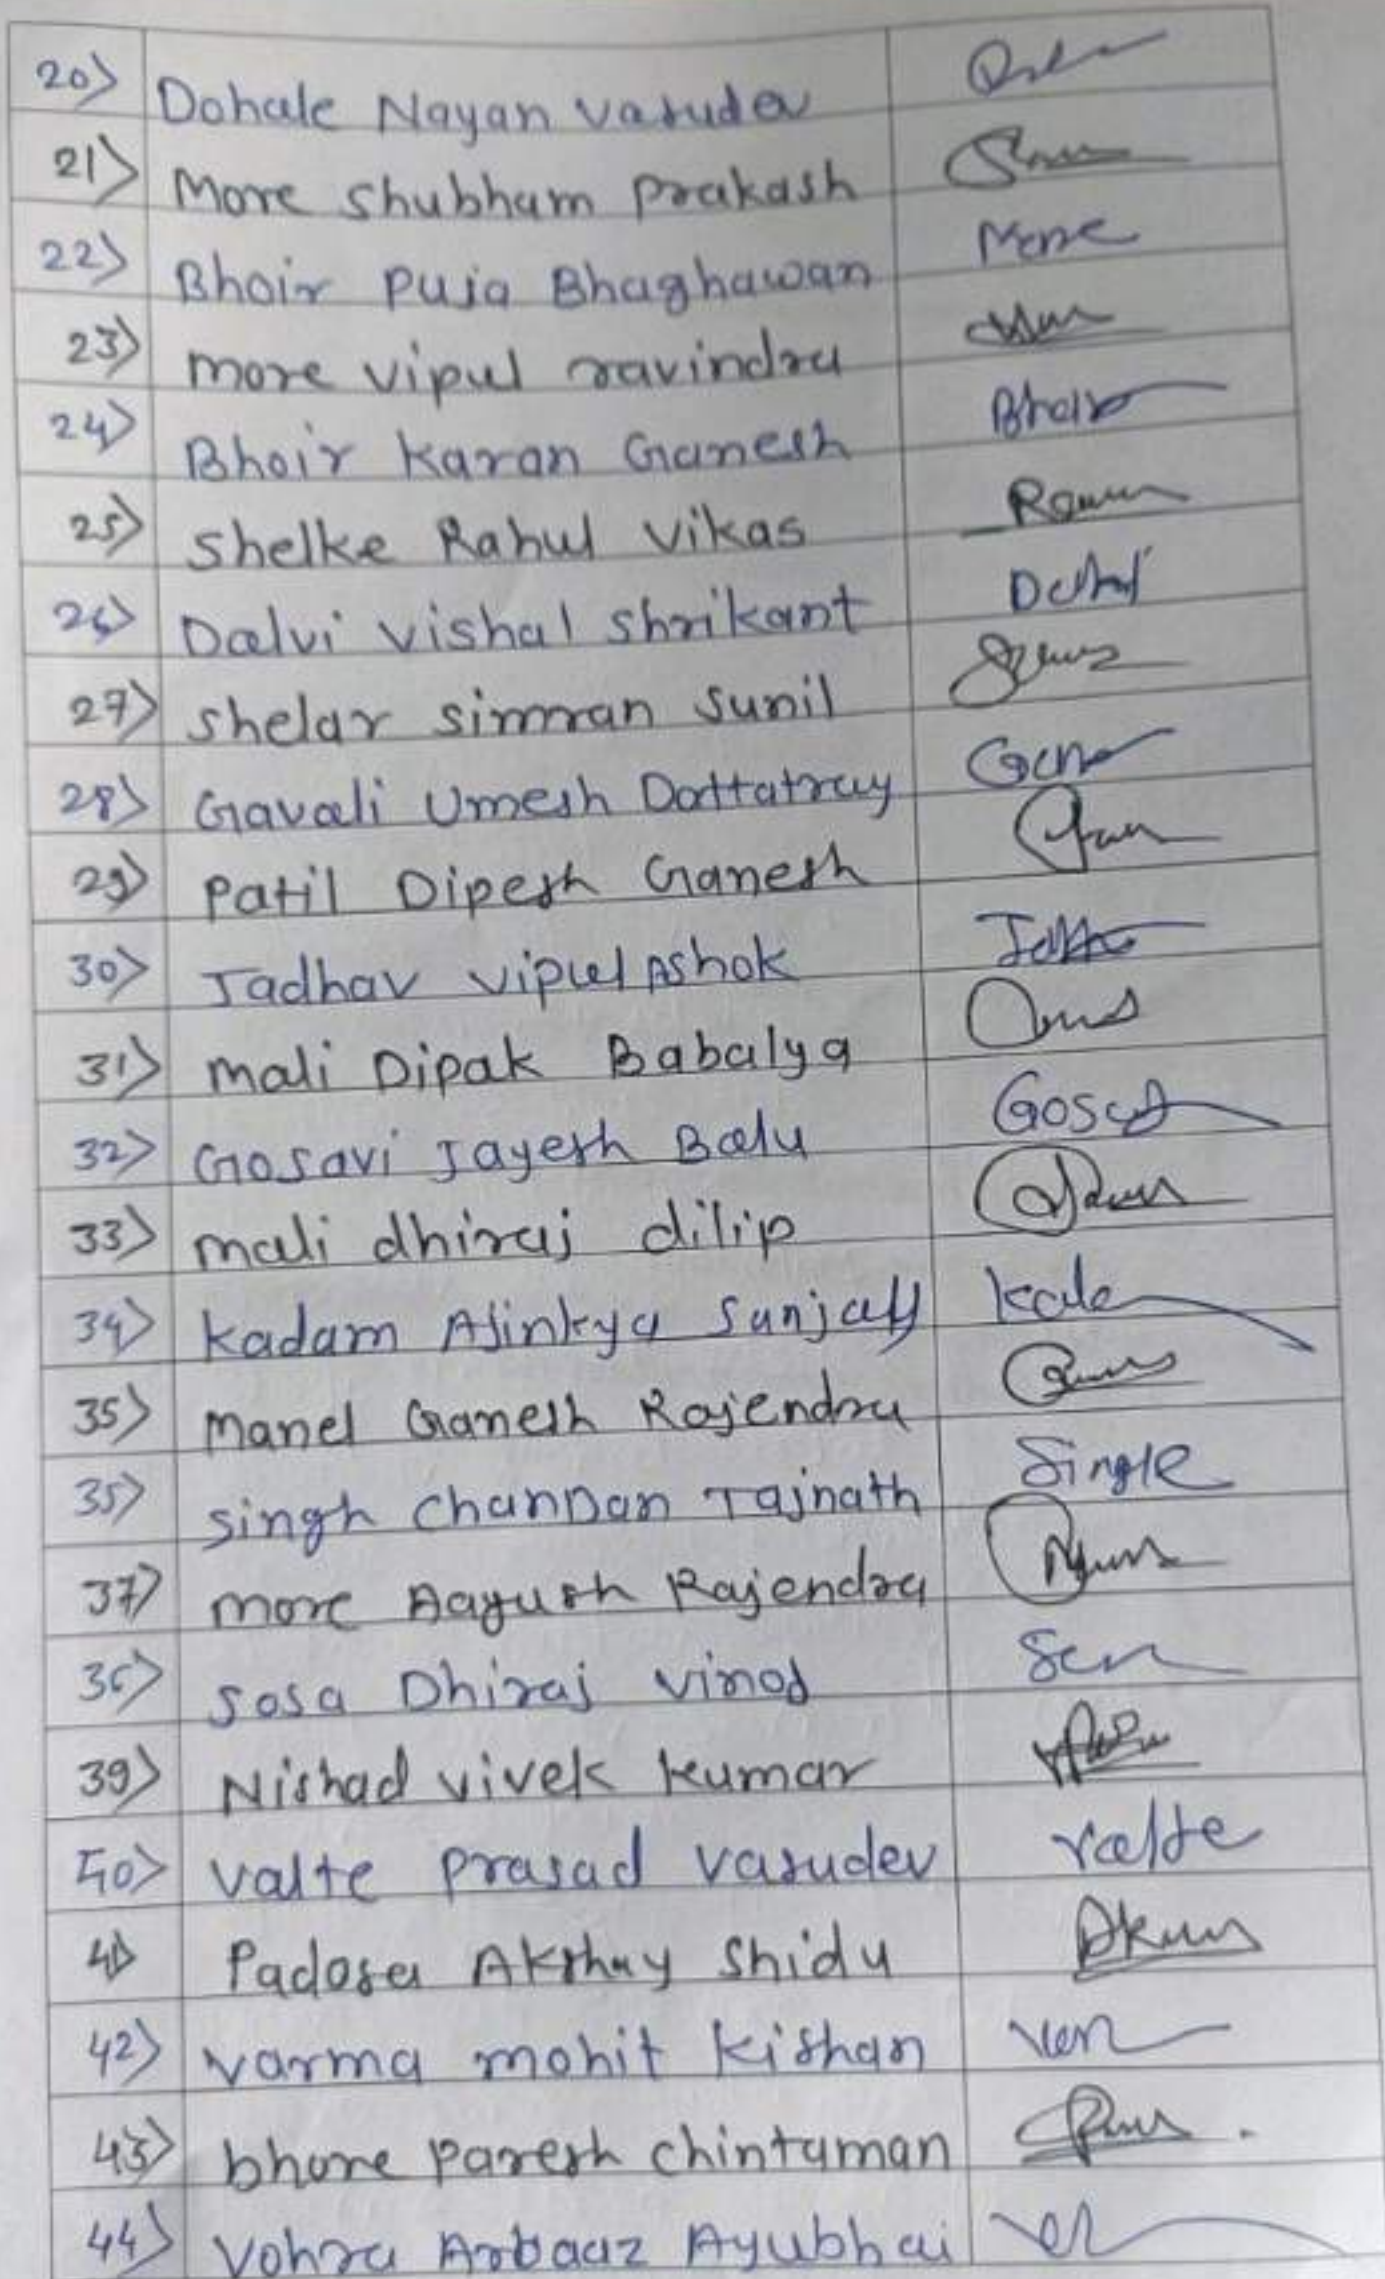 20) Dohale Nayan Vasudev
21) More Shubham Prakash
22) Bhoir Puja Bhaghawan More
23) more vipul ravindra
24) Bhoir Karan Ganesh Bhoir
25) Shelke Rahul Vikas
26) Dalvi Vishal Shrikant
27) Shelar Simran Sunil
28) Gavali Umesh Dattatray
29) Patil Dipesh Ganesh
30) Jadhav vipul Ashok
31) Mali Dipak Babalya
32) Gosavi Jayesh Balu
33) mali dhiraj dilip
34) Kadam Ajinkya Sanjay
35) Manel Ganesh Rajendra
35) Singh ChanDan Tajnath Single
37) more Aayush Rajendra
36) Sosa Dhiraj Vinod
39) Nishad vivek kumar
40) Valte Prasad Vasudev Valte
41) Padosa Akshay Shidu
42) Varma mohit Kishan
43) bhore Paresh Chintaman
44) Vohra Arbaaz Ayubhai